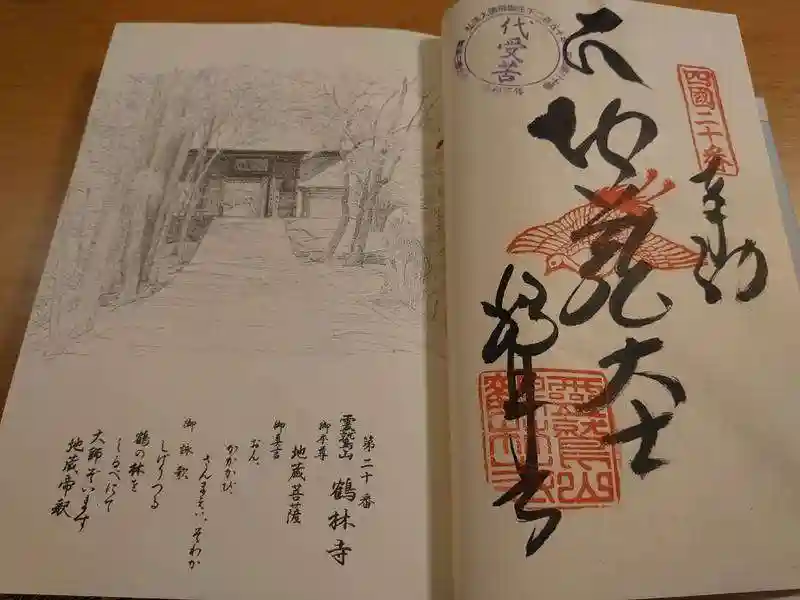 四國二十番
奉納
地蔵大士
鶴林寺
代受苦
第二十番
霊鷲山 鶴林寺
御本尊
地蔵菩薩
御真言
おん、
かかかび、
さんまえい、そわか
御詠歌
しげりつる
鶴の林を
しるべにて
大師ぞいます
地蔵帝釈